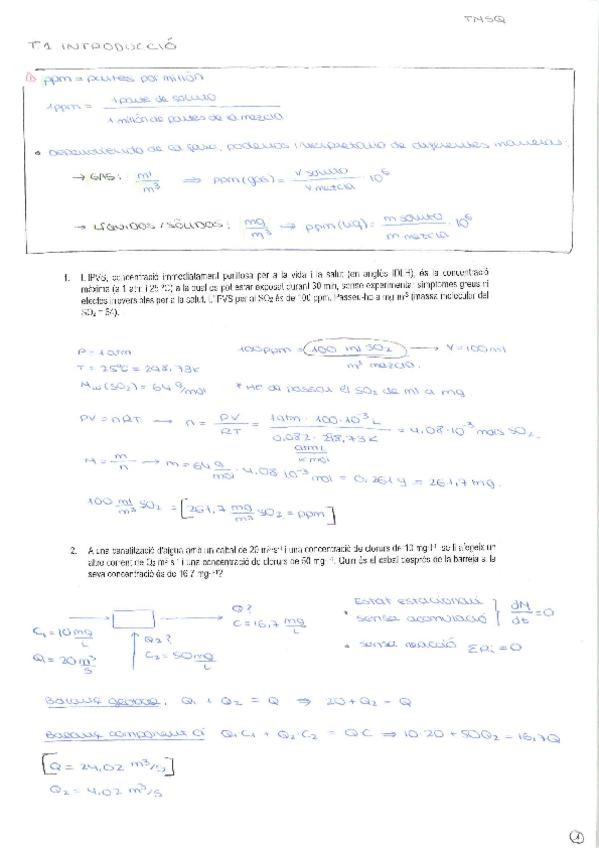 TNSQ
T1 INTRODUCCIÓ
① ppm = partes por millón
1ppm = 1 parte de soluto / 1 millón de partes de la mezcla
• Dependiendo de la fase, podemos interpretarlo de diferentes maneras:
→ GAS: ml/m³ ⇒ ppm(gas) = V soluto / V mezcla · 10⁶
→ LÍQUIDOS/SÓLIDOS: mg/m³ ⇒ ppm(líq) = m soluto / m mezcla · 10⁶
1. L'IPVS, concentració immediatament perillosa per a la vida i la salut (en anglès IDLH), és la concentració
màxima (a 1 atm i 25 ºC) a la qual es pot estar exposat durant 30 min, sense experimentar símptomes greus ni
efectes irreversibles per a la salut. L'IPVS per al SO₂ és de 100 ppm. Passeu-ho a mg m⁻³ (massa molecular del
SO₂ = 64).
P = 1 atm
100ppm = 100 ml SO₂ / m³ mezcla → V = 100 ml
T = 25ºC = 298,73K
Mw(SO₂) = 64 g/mol
* He de passar el SO₂ de ml a mg
PV = nRT → n = PV/RT = 1atm · 100·10⁻³ L / 0,082 atmL/K mol · 298,73K = 4,08·10⁻³ mols SO₂.
M = m/n → m = 64 g/mol · 4,08·10⁻³ mol = 0,261g = 261,7mg.
100 ml/m³ SO₂ = [261,7 mg/m³ SO₂ = ppm]
2. A una canalització d'aigua amb un cabal de 20 m³·s⁻¹ i una concentració de clorurs de 10 mg·l⁻¹ se li afegeix un
altre corrent de Q₂ m³·s⁻¹ i una concentració de clorurs de 50 mg·l⁻¹. Quin és el cabal després de la barreja si la
seva concentració és de 16,7 mg·l⁻¹?
C₁ = 10 mg/L
Q₁ = 20 m³/s
Q₂?
C₂ = 50 mg/L
Q?
C = 16,7 mg/L
• Estat estacionari
• sense acumulació
dM/dt = 0
• sense reacció ΣRi = 0
Balanç general: Q₁ + Q₂ = Q ⇒ 20 + Q₂ = Q
Balanç component Cl Q₁C₁ + Q₂·C₂ = QC ⇒ 10·20 + 50Q₂ = 16,7Q
[Q = 24,02 m³/s]
Q₂ = 4,02 m³/s
1